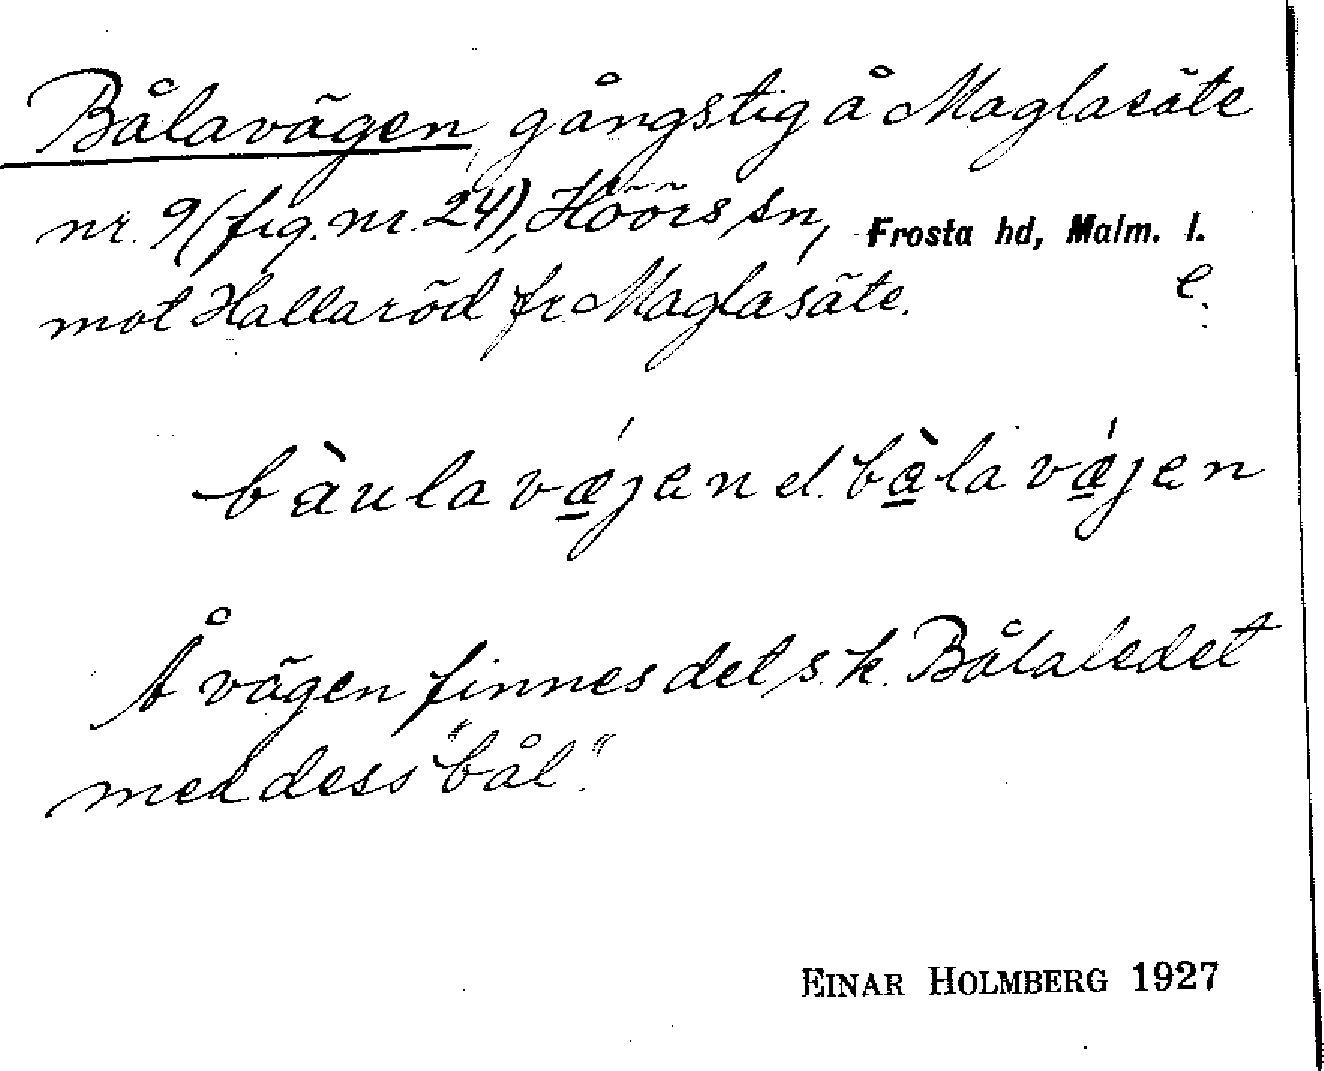 Bålavägen, gångstig å Maglasäte
nr. 9 (fig. nr. 24), Höörs sn, Frosta hd, Malm. l.
mot Hallaröd fr. Maglasäte. e.
bàulavǽ̠jen el. bà̠lavǽ̠jen
Å vägen finnes det s. k. Bålaledet
med dess "bål".
EINAR HOLMBERG 1927